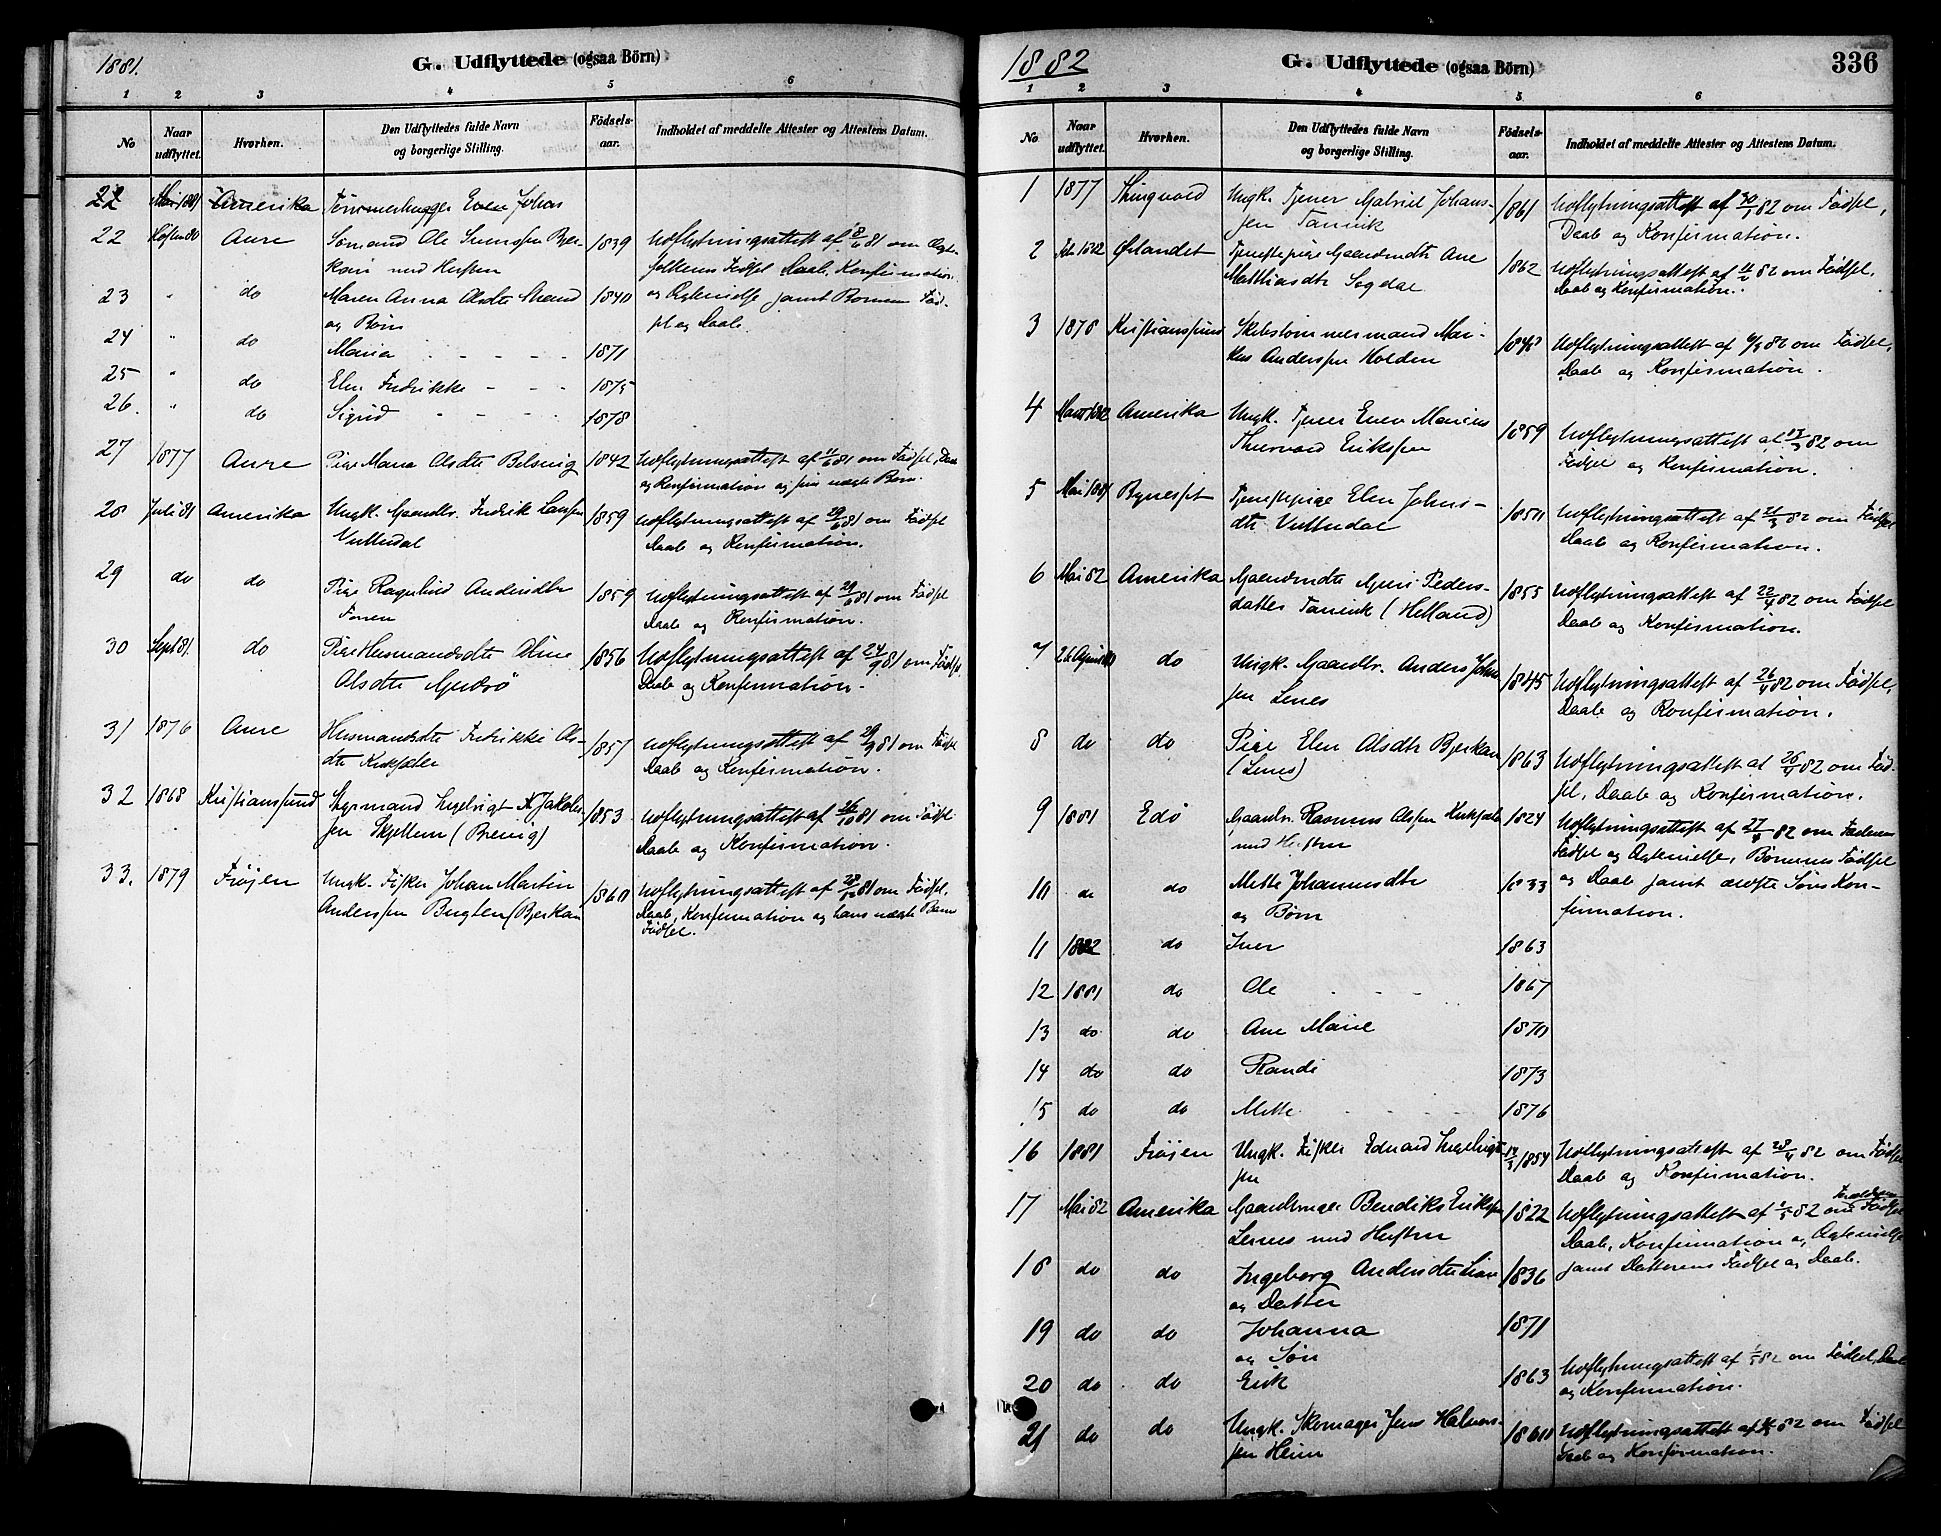 1881.
G. Udflyttede (ogsaa Börn)
1 2 3 4 5 6
No
Naar udflyttet.
Hvorhen.
Den Udflyttedes fulde Navn og borgerlige Stilling.
Födsels-aar.
Indholdet af meddelte Attester og Attestens Datum.
22 Mai 1881 Amerika Tømmerhugger Even Johns
22 Høsten 80 Aure Sømand Ole 1839 Udflytningsattest af 81 om Ægte-
med Hustru folkenes Fødsel Daab, Konfirmation
23 " do Maren Anna Olsdtr Strand 1840 og Ægtevielse samt Børnenes Fød-
og Børn sel og Daab.
24 " do Maria - - - - 1871
25 " do Elen Fredrikke - - - 1875
26. " do Sigrid - - - - 1878
27 1877 Aure Pige Maria Olsdtr 1842 Udflytningsattest af 11/6 81 om Fødsel, Daab
og Konfirmation og sin uægte Børn.
28 Juli 81 Amerika Ungk. Gaardbr. Fredrik Larssen 1859 Udflytningsattest af 29/6 81 om Fødsel
Vuttudal Daab og Konfirmation.
29 do do Pige Ragnhild Andersdtr 1859 Udflytningsattest af 29/6 81 om Fødsel
Daab og Konfirmation.
30 Sept 81. do Pige Husmandsdtr Oline 1856 Udflytningsattest af 24/9 81 om Fødsel,
Olsdtr Daab og Konfirmation.
31 1876 Aure Husmandsdtr Fredrikke Ols- 1857 Udflytningsattest af 29/9 81 om Fødsel
dtr Daab og Konfirmation.
32 1868 Kristianssund Styrmand Ingebrigt N Jakob- 1853 Udflytningsattest af 16/10 81 om Fødsel
sen Skjellum Daab og Konfirmation.
33. 1879 Frøjen Ungk. Fisker Johan Martin 1860 Udflytningsattest af 81 om Fødsel,
Anderssen Bugten (Bjerkan Daab, Konfirmation og hans uægte Barns
Fødsel.
1882
G. Udflyttede (ogsaa Börn)
336
1 2 3 4 5 6
No
Naar udflyttet.
Hvorhen.
Den Udflyttedes fulde Navn og borgerlige Stilling.
Födsels-aar.
Indholdet af meddelte Attester og Attestens Datum.
1 1877 Thingvold Ungk. Tjener Gabriel Johans- 1861 Udflytningsattest af 30/1 82 om Fødsel,
sen Tannvik Daab og Konfirmation.
2 1882 Ørlandet Tjenestepige Gaardmdtr Ane 1862 Udflytningsattest af 82 om Fødsel,
Matthiasdtr Sogdal Daab og Konfirmation.
3 1878 Kristianssund Skibstømmermand Mari- 1848 Udflytningsattest af 82 om Fødsel,
kus Anderssen Holden Daab og Konfirmation.
4 Marts 1882 Amerika Ungk. Tjener Even Marius 1859 Udflytningsattest af 82 om
Thorvald Erikssen Fødsel og Konfirmation.
5 Mai 1881 Bynesset Tjenestepige Elen Johns- 1850 Udflytningsattest af 21/3 82 om Fødsel
dtr Vuttudal Daab og Konfirmation.
6 Mai 82 Amerika Gaardmdtr Guri Peders- 1855 Udflytningsattest af 22/4 82 om Fødsel
datter Tannvik (Helland) Daab og Konfirmation.
7 26 April do Ungk. Gaardbr. Anders Johns- 1845 Udflytningsattest af 26/4 82 om Fødsel,
sen Lenes Daab og Konfirmation.
8 do do Pige Elen Olsdtr Bjerkan 1863 Udflytningsattest af 26/4 82 om Fød-
(Lenes) sel, Daab og Konfirmation.
9 1881 Edø Gaardbr. Rasmus Olssen 1824 Udflytningsattest af 27/4 82 om
med Hustru Fødsel og Ægtevielse, Børnenes Fødsel
10 do do Mette Johannesdtr 1833 og Daab samt ældste Søns Kon-
og Børn firmation.
11 1882 do Iver 1863
12 1881 do Ole - - - 1867
13 do do Ane Marie 1870
14 do do Randi 1873
15 do do Mette - - - 1876
16 1881 Frøjen Ungk. Fisker Edvard Ingebrigt- 1854 Udflytningsattest af 28/4 82 om Fødsel
sen Daab og Konfirmation.
17 Mai 82 Amerika Gaardbruger Bendik Erikssen 1822 Udflytningsattest af 1/5 82 om Forældrenes Fødsel
Lenes med Hustru Daab, Konfirmation og Ægtevielse
18 do do Ingeborg Andersdtr 1836 samt Datterens Fødsel og Daab.
og Datter
19 do do Johanna 1871
og Søn
20 do do Erik 1863 Udflytningsattest af 1/5 82 om Fødsel, Daab
og Konfirmation.
21 do do Ungk. Skomager Jens Halvors- 1860 Udflytningsattest af 82 om Fødsel
sen Heim Daab og Konfirmation.